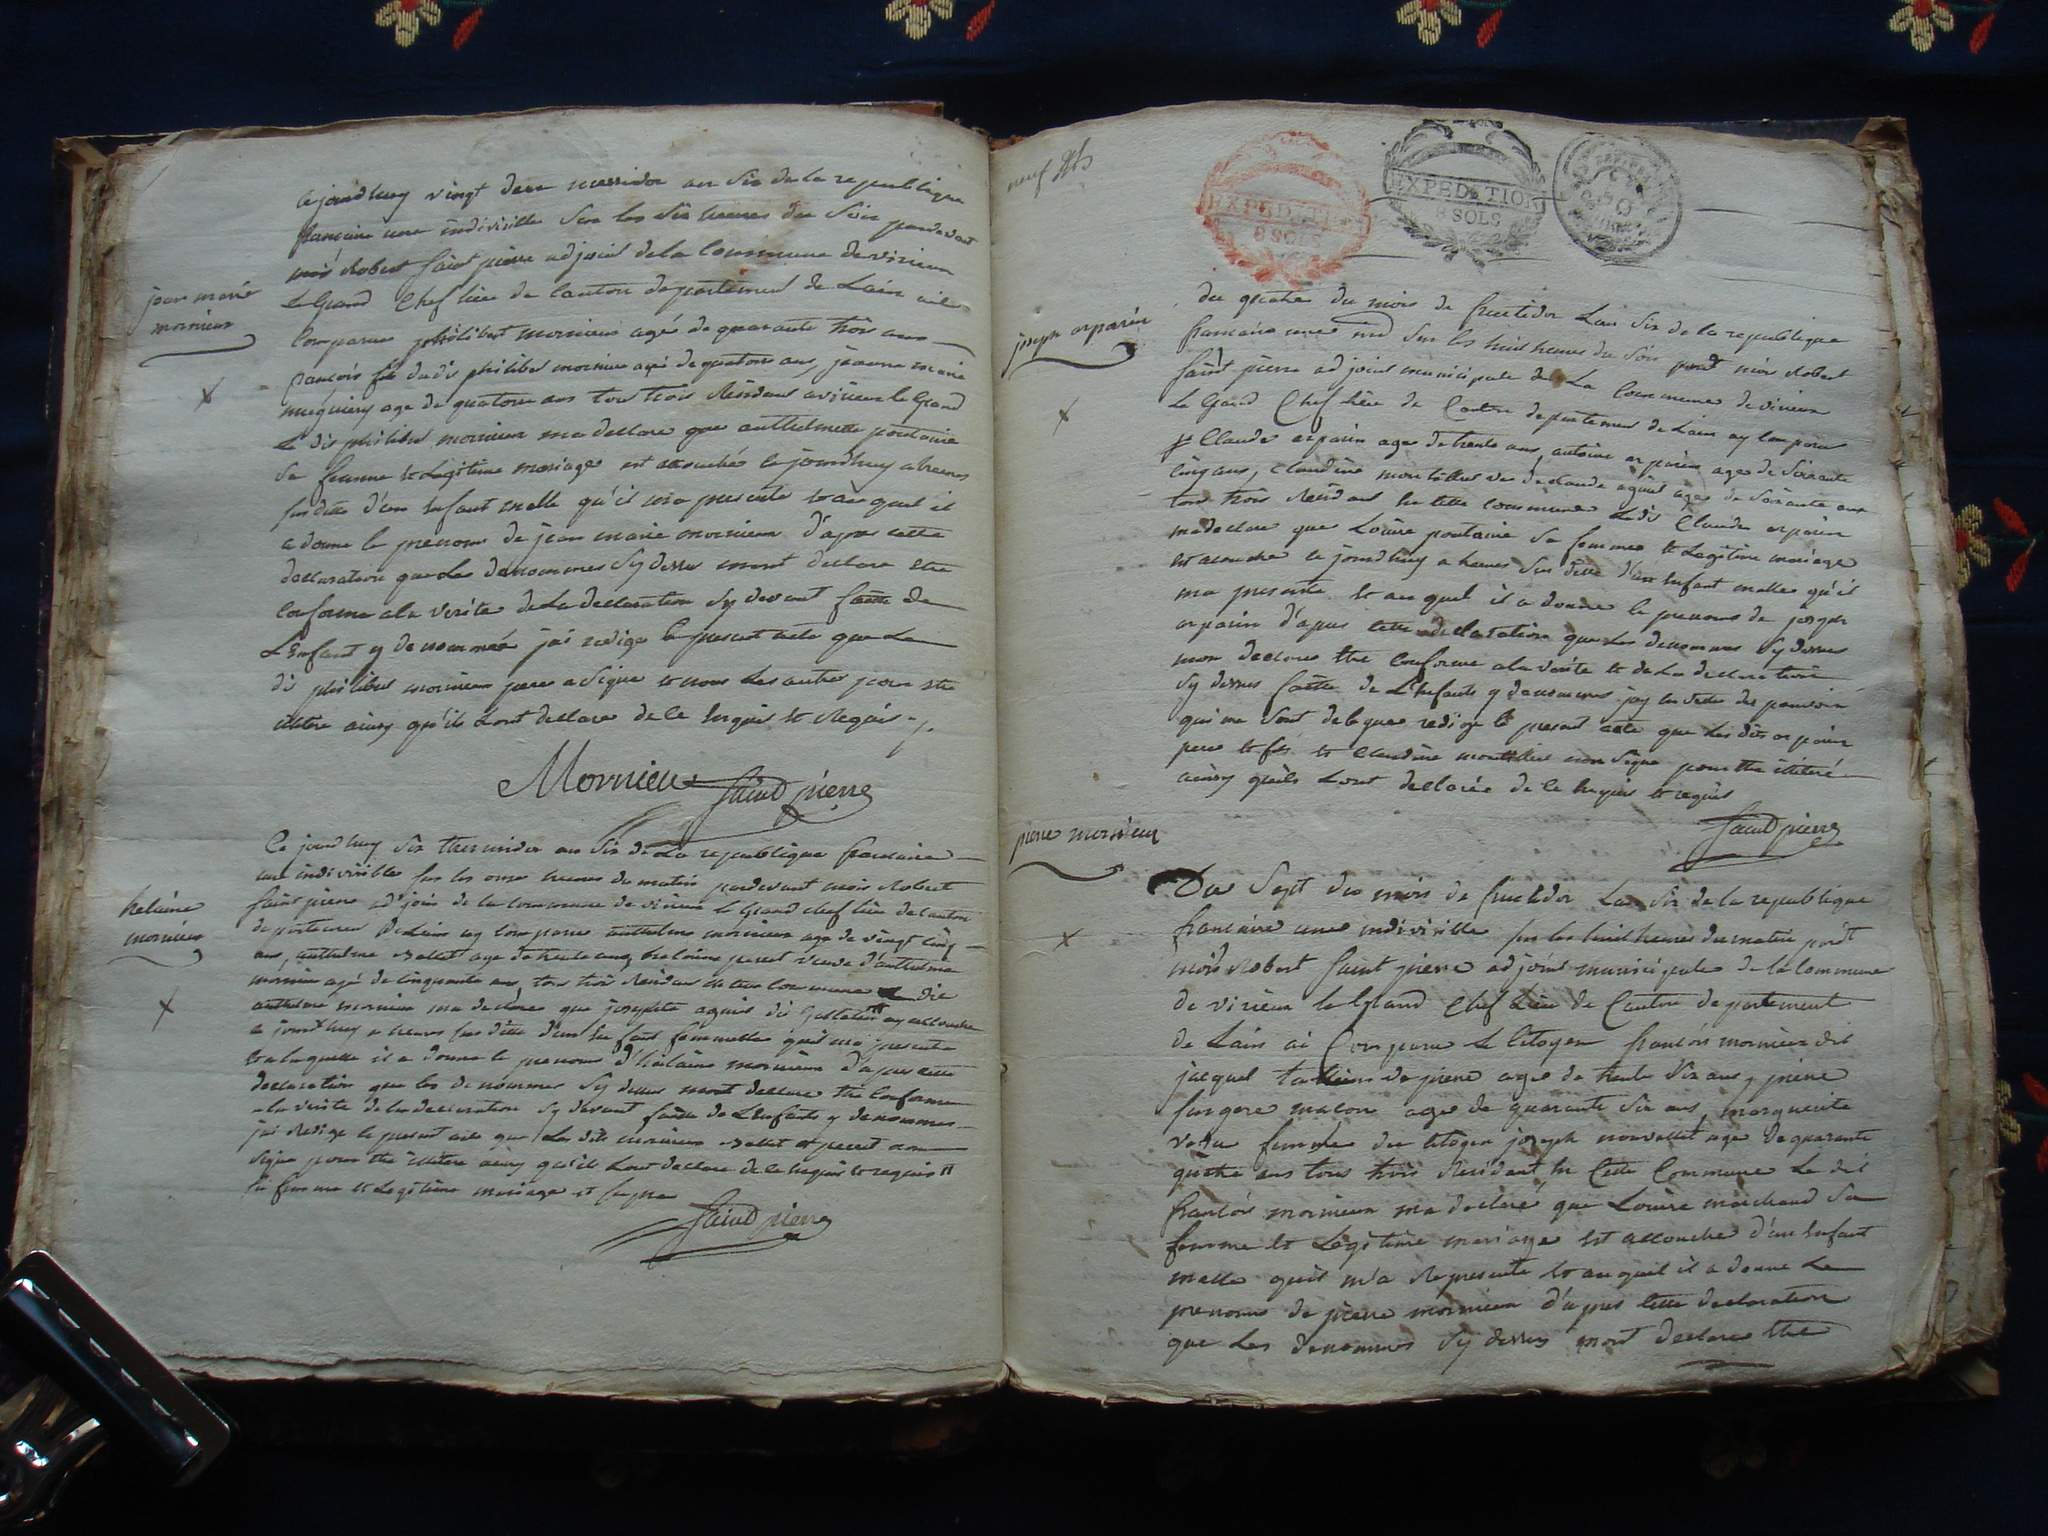 jean marie
mornieux
ce jourdhuy vingt deux messidor an six de la republique
francaise une indivisible sur les six heures du soir pardevant
moi Robert saint pierre adjoint de la commune de virieux
Le Grand Chef lieu de Canton departement de Lain
comparu philibert mornieux agé de quarante trois ans
francois fils dudit philibert mornieux agé de quatorze ans, jeanne marie
age de quatorze ans tous trois Résidant a virieux le Grand
Le dit philibert mornieux ma declare que anthelmette pontanie
sa femme et Legitime mariage est accouchée ce jourdhuy a heures
susditte d'un Enfant malle qu'il ma presente et auquel il
a donne le prenom de jean marie mornieux d'apres cette
declaration que Les denommes sy dessus mont declare etre
conforme a la verite de La declaration sy devant faitte de
L'Enfant y denommé jai redige le present acte que Le
dit philibert mornieux pere a signe et nous Les autres pour etre
illitere ainsy qu'ils Lont declare de ce Enquis et Requis ./.
Mornieu Saint pierre
helaine
mornieux
Ce jourdhuy six thermidor an six de La republique francaise
une indivisible sur les onze heures du matin pardevant moi Robert
saint pierre adjoin de la commune de virieux le Grand chef lieu de canton
departement de Lain ay comparu anthelme mornieux age de vingt cinq
ans, anthelme Ballet age de trente ans, helaine perret veuve d'anthelme
mornieu agé de cinquante ans, tous trois Résidant en cette commune Le dit
anthelme mornieu ma declare que josephte aguin dit ay accouche
ce jourdhuy a heures sus ditte d'un Enfant femmelle quil ma presente
et a laquelle il a donne le prenom d'helaine mornieux d'apres cette
declaration que les denommes sy dessus mont declare etre conforme
a la verite de la declaration sy devant faitte de L'Enfant y denommee
jai Redige le present acte que Les dits mornieux Ballet et perret non
signe pour etre illitere ainsy qu'ils Lont declare de ce Enquis et requis "
sa femme et Legitime mariage
Saint pierre
neuf
EXPEDITION
8 SOLS
EXPEDITION
8 SOLS
joseph arparin
du quatre du mois de fructidor Lan six de la republique
francaise une ind sur les huit heures du soir pardt moi Robert
saint pierre adjoint municipale de La Commune de virieux
Le Grand Chef Lieu de Canton departement de Lain ay comparu
Claude arparin age de trente ans, antoine arparin age de soixante
cinq ans, Claudine montillet ve de Claude aguin age de soixante ans
tous trois Résidant En cette commune Ledit Claude arparin
ma declare que Louise pontanie sa femme et Legitime mariage
et accouche ce jourdhuy a heures sus ditte d'un Enfant malle qu'il
ma presente et auquel il a donne le prenom de joseph
arparin d'apres cette declaration que Les denommes sy dessus
mon declare etre conforme a la verite et de La declaration
sy dessus faitte de L'Enfant y denommes jay en vertu des pouvoir
qui me sont delegue redige le present acte que Les dits arparin
pere et fils et Claudine montillet non signe pour etre illiteré
ainsy qu'ils Lont declarée de ce Enquis et requis
Saint pierre
pierre mornieux
Du Sept du mois de fructidor Lan six de la republique
francaise une indivisible sur les huit heures du matin pardt
moi Robert saint pierre adjoint municipale de la Commune
de virieux le Grand Chef Lieu de Canton departement
de Lain ai Comparu Le Citoyen francois mornieux dit
jacquet de pierre age de trente six ans, pierre
fargere macon age de quarante six ans, marguerite
femme du Citoyen joseph nouvellet age de quarante
quatre ans tous trois Residant En Cette Commune Le dit
francois mornieux ma declaré que Louise marchand sa
femme et Légitime mariage Est accouche d'un Enfant
malle quil m'a Represente et auquel il a donne Le
prenom de pierre mornieux d'apres Cette declaration
que Les denommes sy dessus mont declare etre